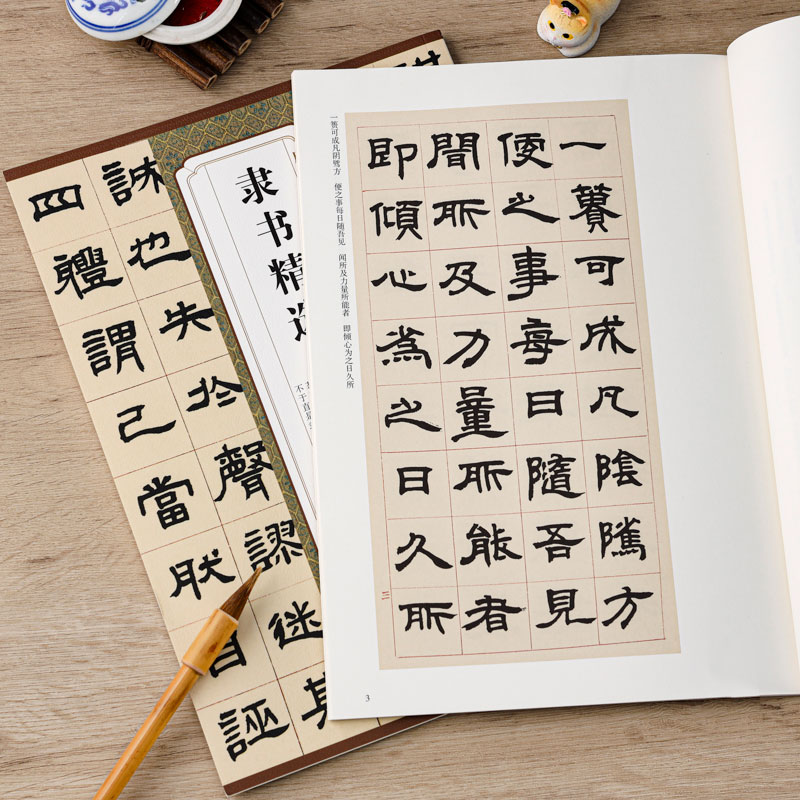 一簣可成凡陰隲方
便之事每日隨吾見
聞所及力量所能者
即傾心為之日久所
三
一篑可成凡阴骘方　便之事每日随吾见　闻所及力量所能者　即倾心为之日久所
3
隶书精选
誠也失於聲謬迷其
四軆謂己當然自誣